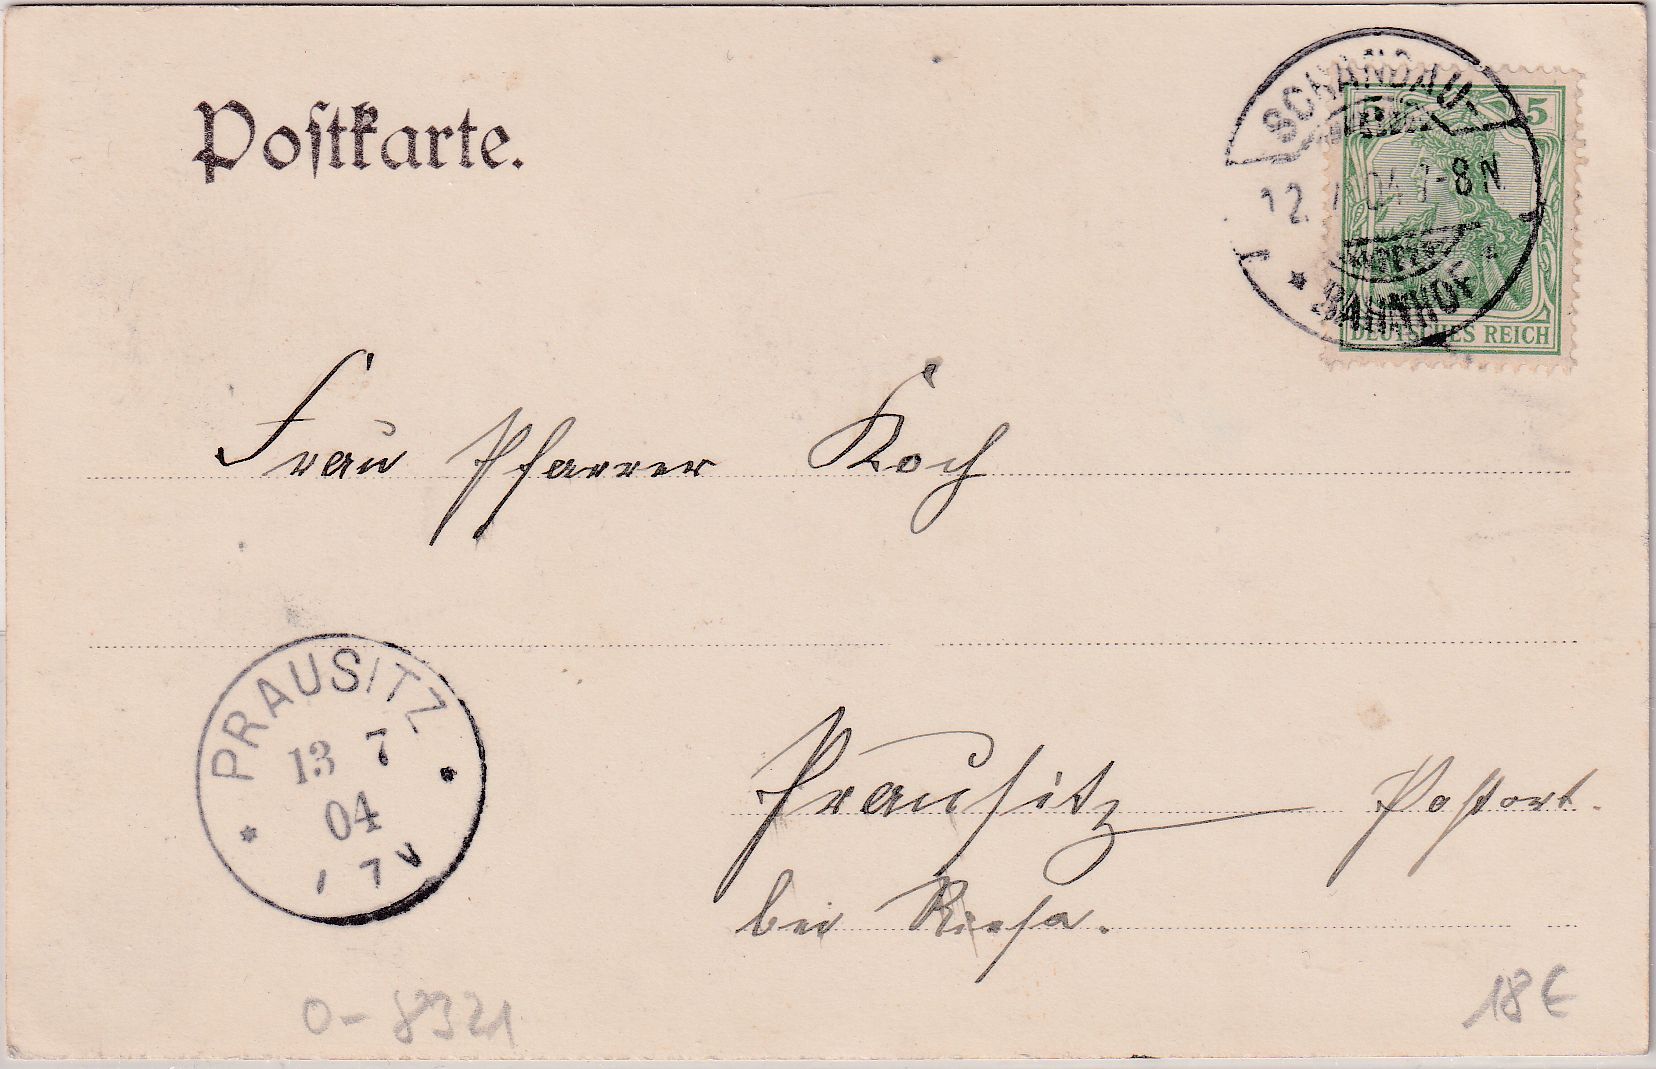 Postkarte.
SCHANDAU
12. 7. 04 7-8 N
BAHNHOF
5
DEUTSCHES REICH
Frau Pfarrer Koch
PRAUSITZ
13 7
04
7 V
Prausitz Postort.
bei Riesa.
O-8321
18€